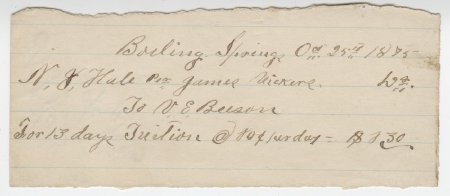 Boiling Spring Oct 25th 1875
N, J, Hale Pro James Vickers. Dr.
To V. E. Beeson
For 13 days Tuition @ 10¢ per day = $ 1 30